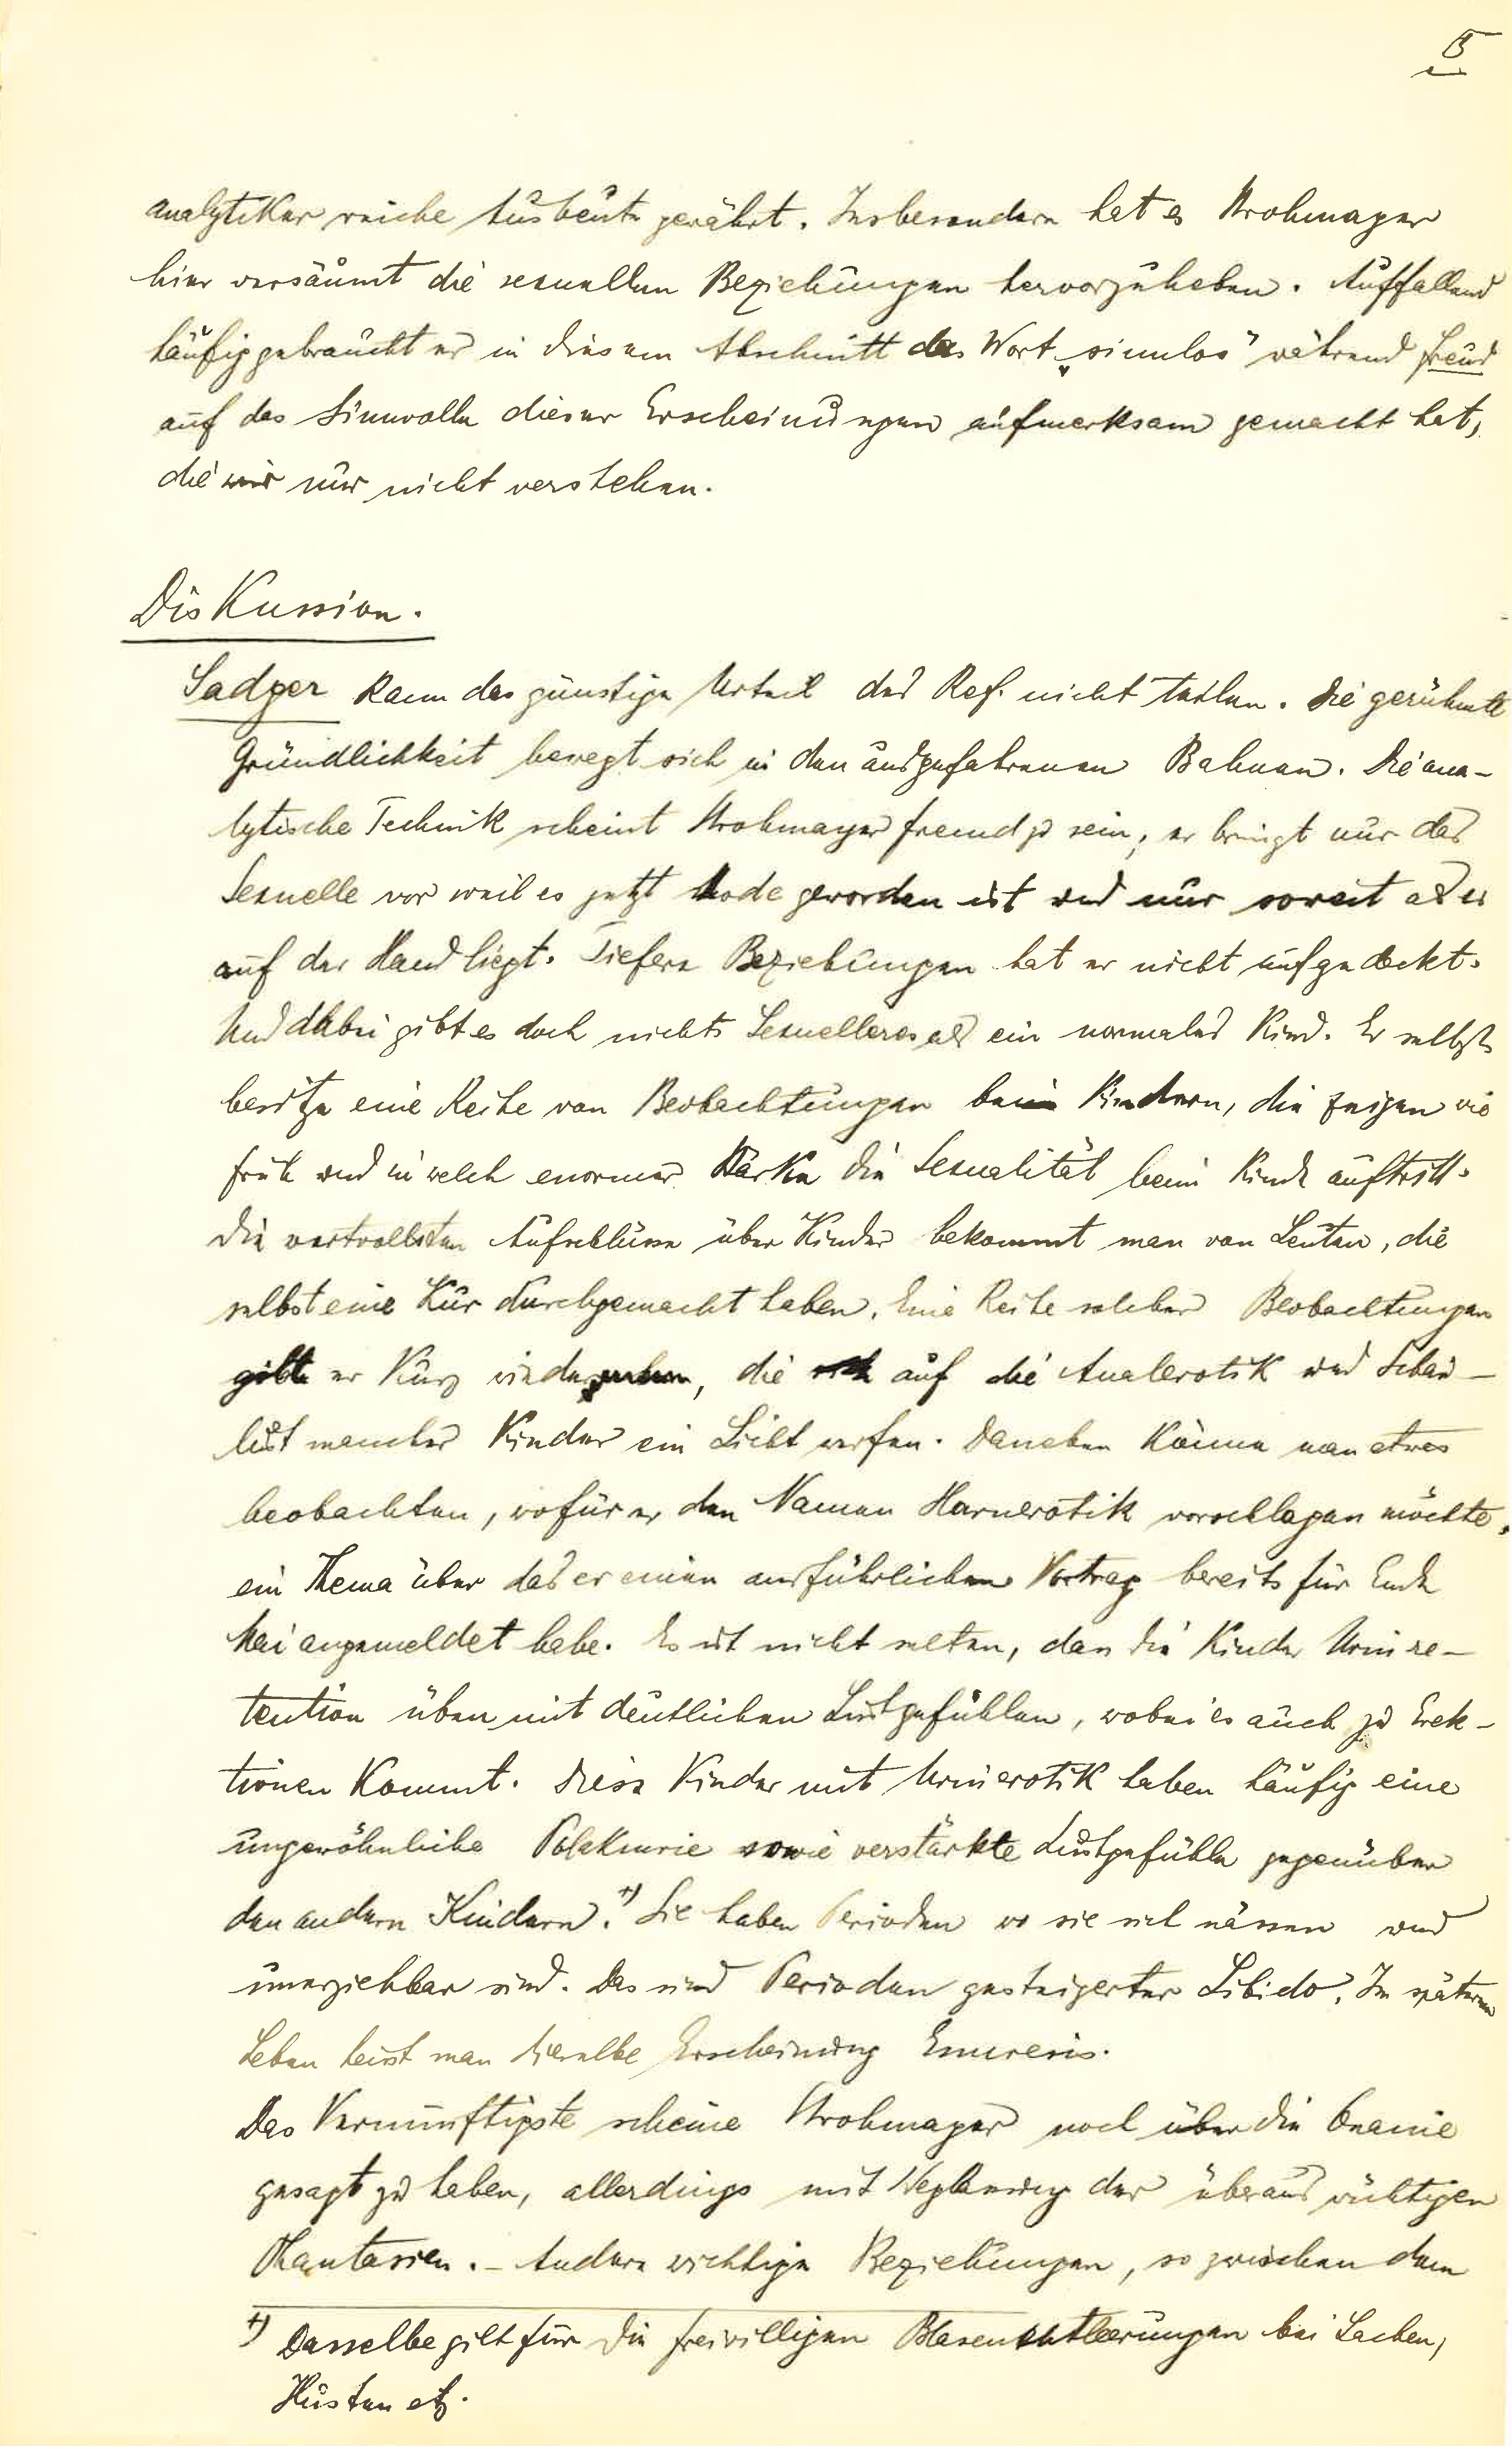 5
analytiker reiche Ausbeute gewährt. Insbesondere hat es Strohmayer
hier versäumt die sexuellen Beziehungen hervorzuheben. Auffallend
häufig gebraucht er in diesem Abschnitt das Wort „sinnlos" während Freud
auf das Sinnvolle dieser Erscheinungen aufmerksam gemacht hat,
die wir nur nicht verstehen.
Diskussion.
Sadger kann das günstige Urteil des Ref. nicht teilen. Die gerühmte
Gründlichkeit bewegt sich in den ausgefahrenen Bahnen. Die ana-
lytische Technik scheint Strohmayer fremd zu sein; er bringt nur das
Sexuelle vor weil es jetzt Mode geworden ist und nur soweit als es
auf der Hand liegt. Tiefere Beziehungen hat er nicht aufgedeckt.
Und dabei gibt es doch nichts Sexuelleres als ein normales Kind. Er selbst
besitze eine Reihe von Beobachtungen bei Kindern, die zeigen wie
früh und in welch enormer Stärke die Sexualität beim Kinde auftritt.
Die wertvollsten Aufschlüsse über Kinder bekommt man von Leuten, die
selbst eine Kur durchgemacht haben. Eine Reihe solcher Beobachtungen
gibt er kurz wieder, die auf die Analerotik und Schau-
lust mancher Kinder ein Licht werfen. Daneben könne man etwas
beobachten, wofür er den Namen Harnerotik vorschlagen möchte,
ein Thema über das er einen ausführlichen Vortrag bereits für Ende
Mai angemeldet habe. Es ist nicht selten, dass die Kinder Urinre-
tention üben mit deutlichen Lustgefühlen, wobei es auch zu Erek-
tionen kommt. Diese Kinder mit Urinerotik haben häufig eine
ungewöhnliche Polakiurie sowie verstärkte Lustgefühle gegenüber
den andern Kindern.+) Sie haben Perioden wo sie sich nässen und
unerziehbar sind. Das sind Perioden gesteigerter Libido. Im späteren
Leben heisst man dieselbe Erscheinung Enuresis.
Das Vernünftigste scheine Strohmayer noch über die Onanie
gesagt zu haben, allerdings mit Weglassung der überaus wichtigen
Phantasien. – Andere wichtige Beziehungen, so zwischen dem
+) Dasselbe gilt für die freiwilligen Blasenentleerungen bei Lachen,
Husten etz.